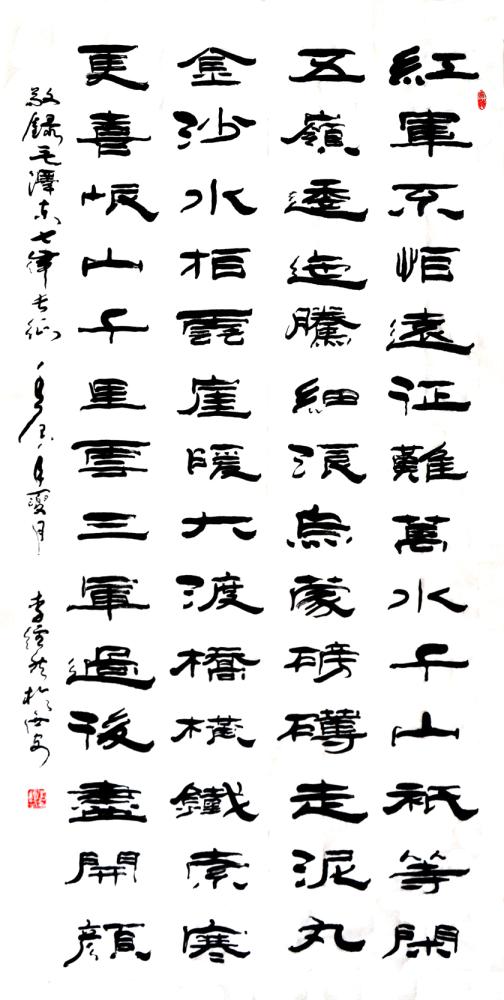 紅軍不怕遠征難萬水千山祇等閑
五嶺逶迤騰細浪烏蒙磅礴走泥丸
金沙水拍雲崖暖大渡橋橫鐵索寒
更喜岷山千里雪三軍過後盡開顏
敬錄毛澤东七律长征 夏月 李